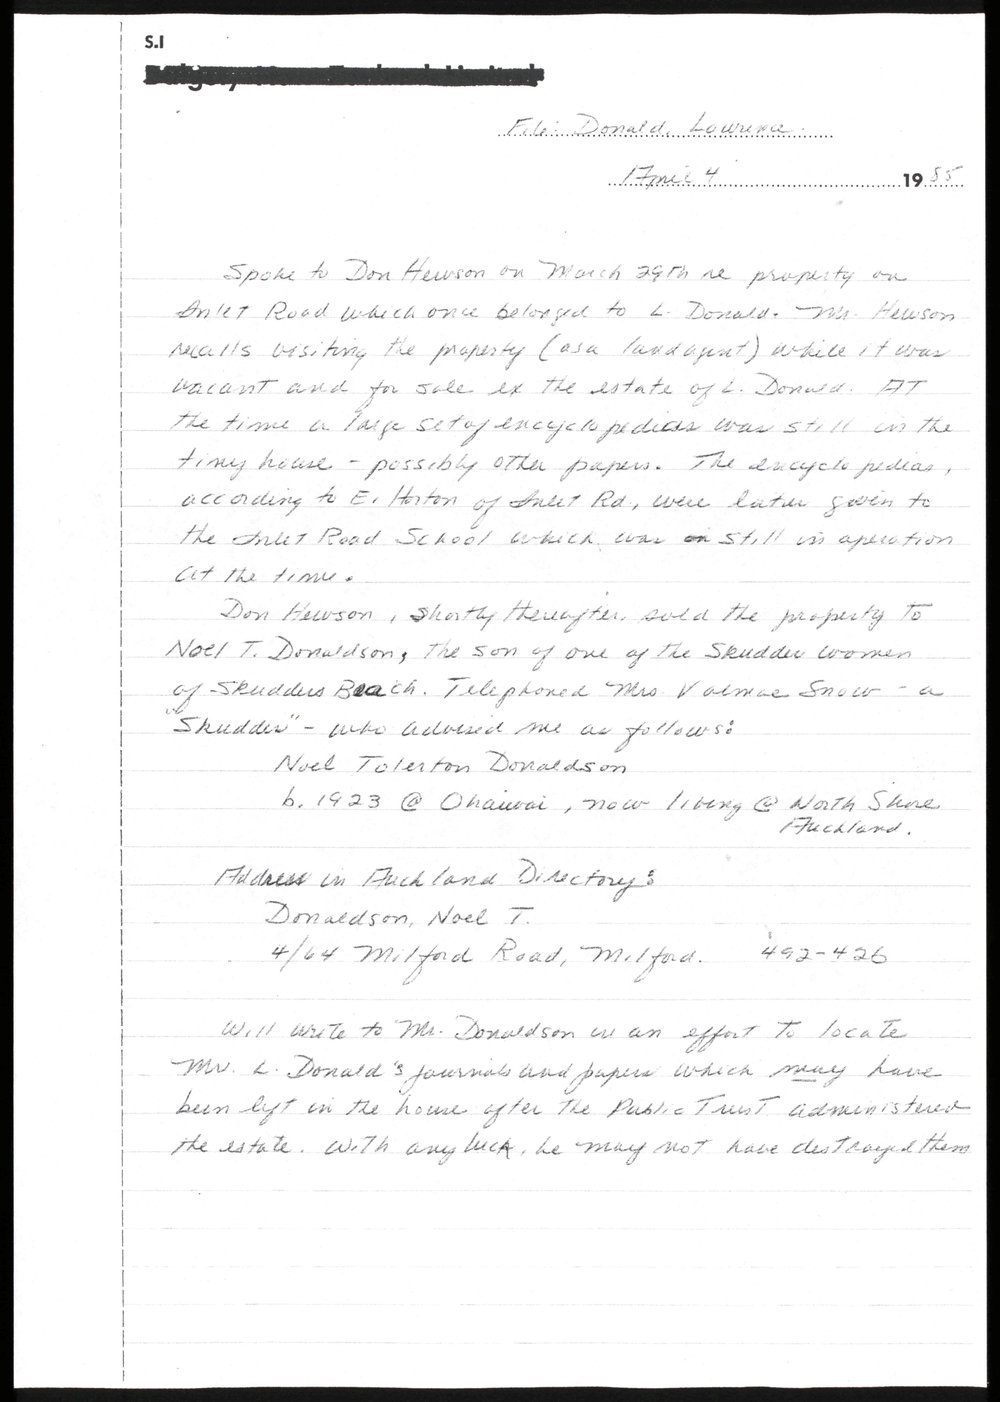 S.1
File: Donald, Lawrence.
April 4 1985
Spoke to Don Hewson on March 29th re property on
Inlet Road which once belonged to L. Donald. Mr. Hewson
recalls visiting the property (as a land agent) while it was
vacant and for sale ex the estate of L. Donald. At
the time a large set of encyclopedias was still in the
tiny house - possibly other papers. The encyclopedias,
according to E. Horton of Inlet Rd, were later given to
the Inlet Road School which was still in operation
at the time.
Don Hewson, shortly thereafter, sold the property to
Noel T. Donaldson, the son of one of the Skudder women
of Skudders Beach. Telephoned Mrs. Valmae Snow - a
"Skudder" - who advised me as follows:
Noel Tolerton Donaldson
b. 1923 @ Ohaiwai, now living @ North Shore
Auckland.
Address in Auckland Directory:
Donaldson, Noel T.
4/64 Milford Road, Milford. 492-426
Will write to Mr. Donaldson in an effort to locate
Mr. L. Donald's journals and papers which may have
been left in the house after the Public Trust administered
the estate. With any luck, he may not have destroyed them